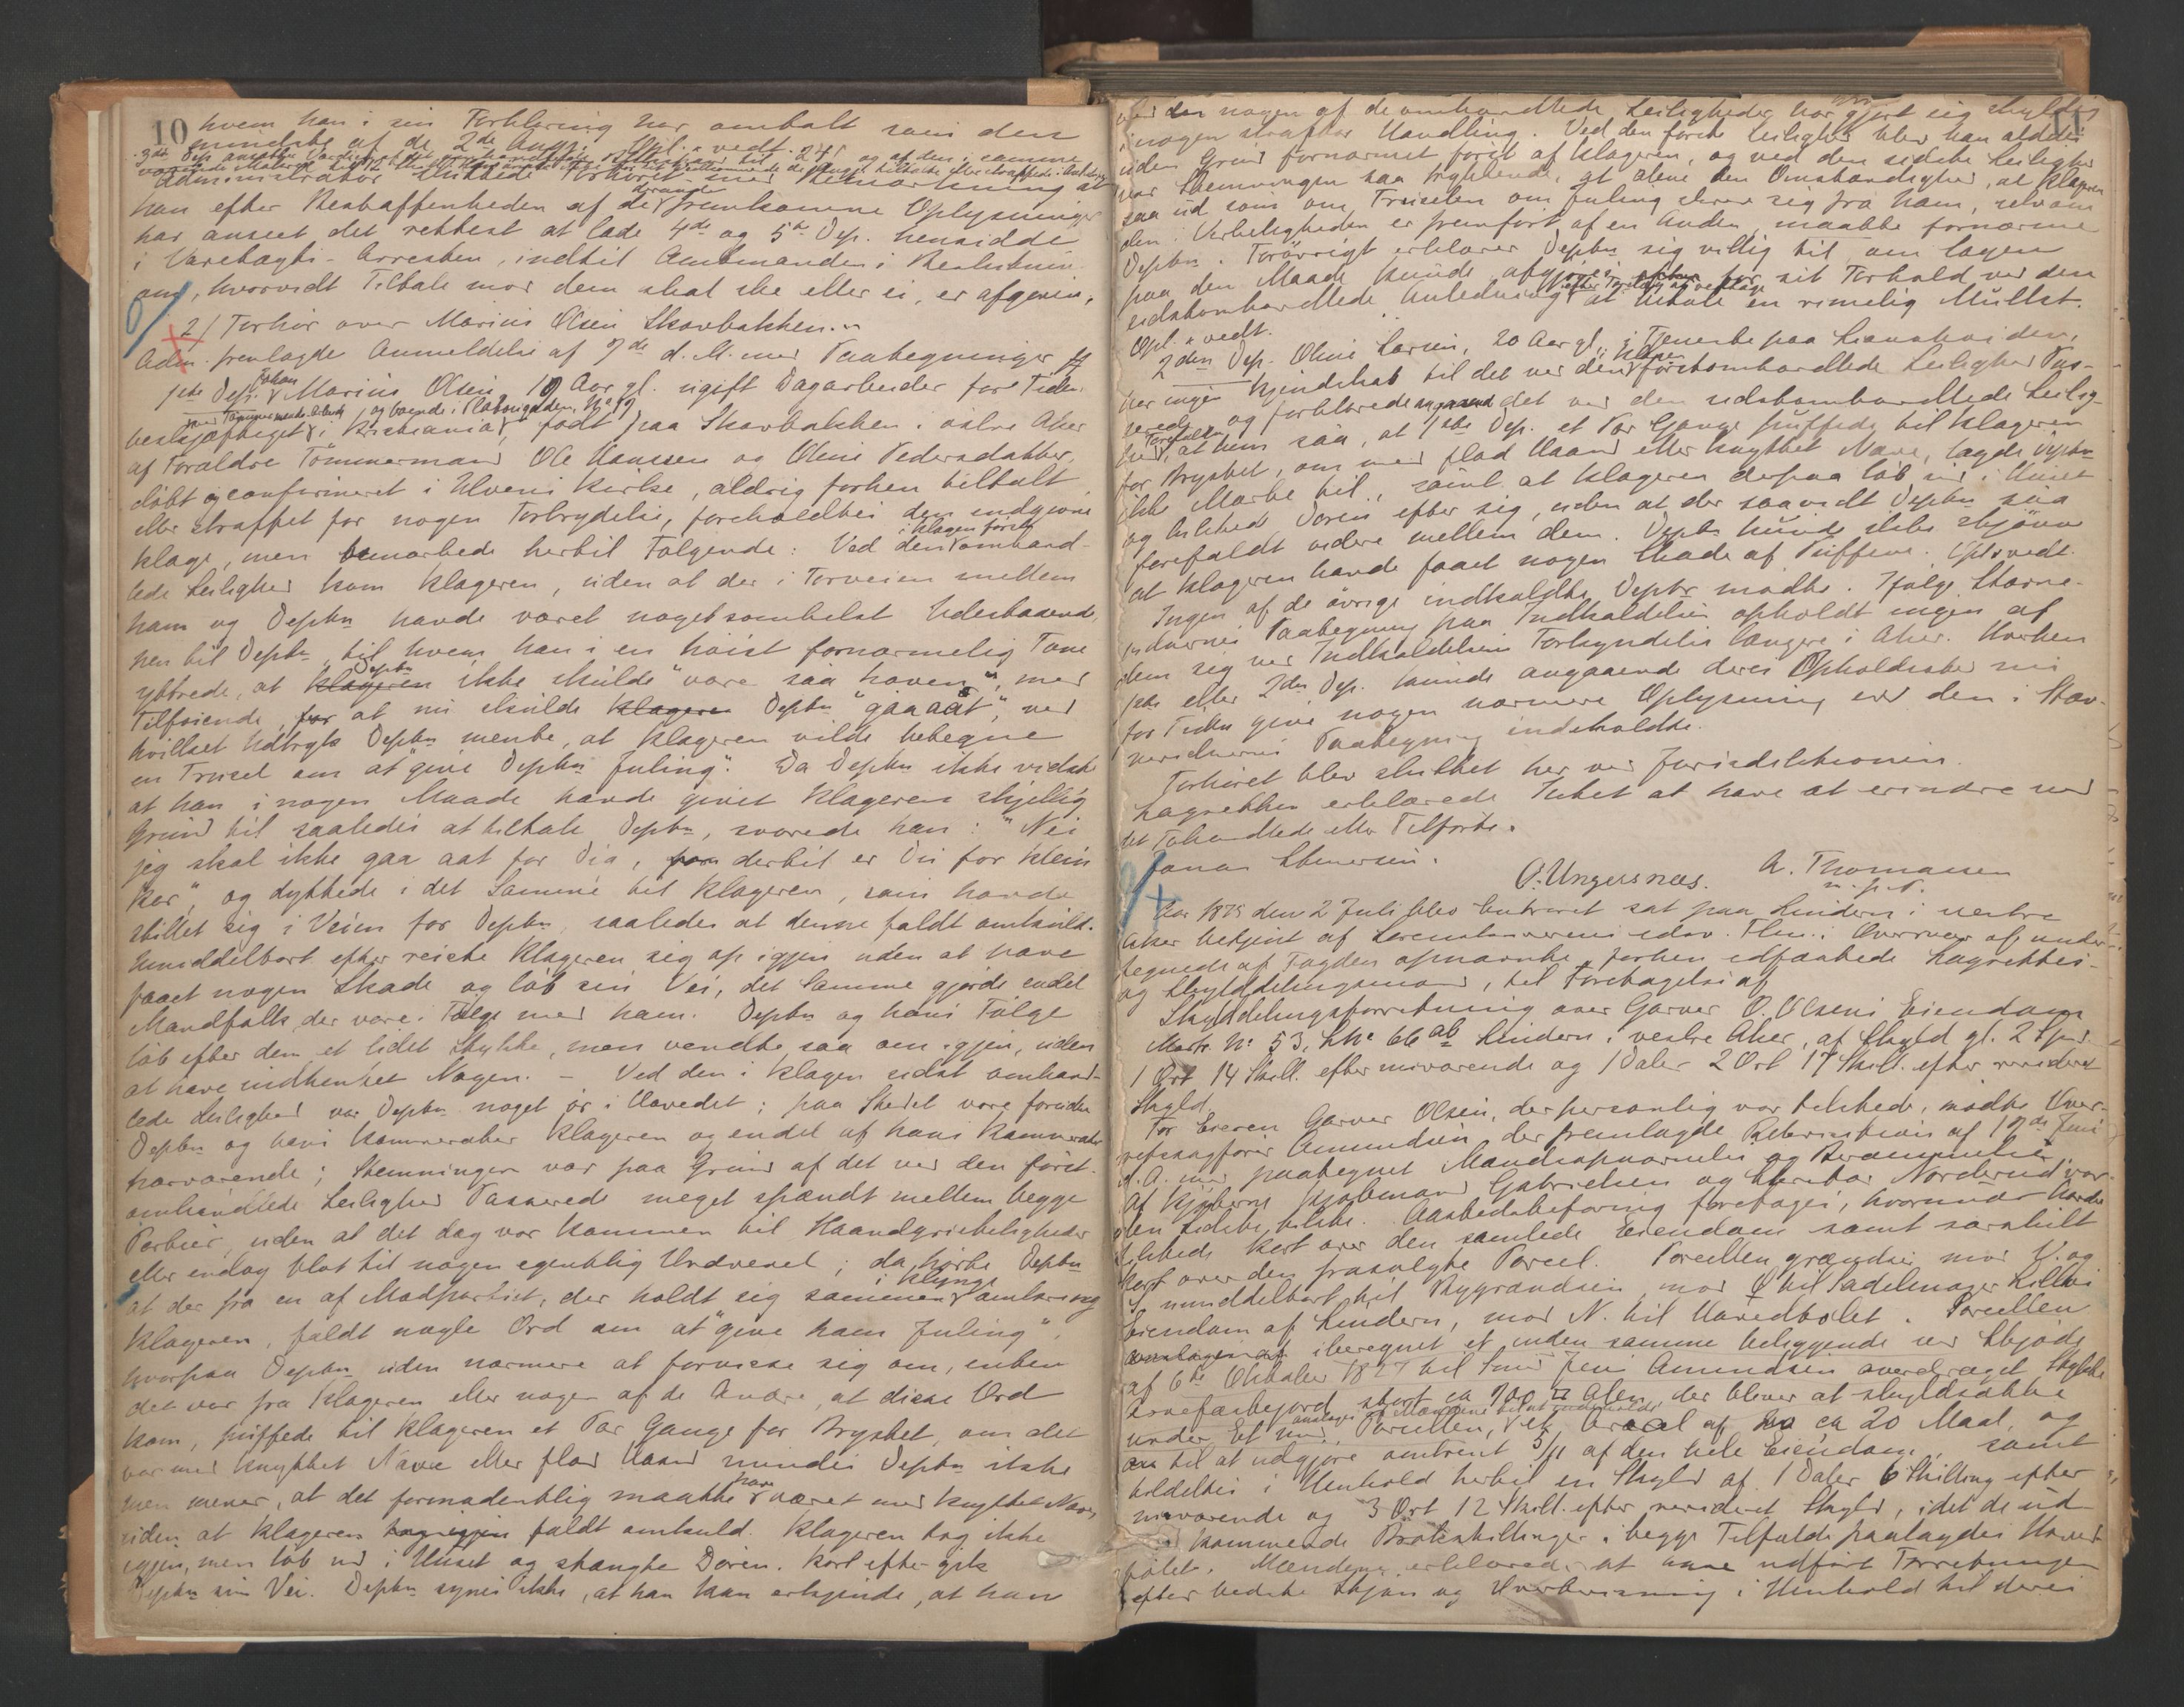 10
hvem han i sin Forklaring har omtalt som den
mindste af de 2de Andre. Opl. & vedt.
Administrator sluttede Forhøret med Bemærkning at
han efter Beskaffenheden af de derunde fremkomne Oplysninger
har anseet det rettest at lade 4de og 5te Dep. hensidde
i Varetægts-Arresten, indtil Amtmandens Beslutning
om, hvorvidt Tiltale mod dem skal ske eller ei, er afgiven.
2/ Forhør over Marius Olsen Skovbakken.
Adm. fremlagde Anmeldelse af 7de d. M. med Paategninger
1ste Dep. Johan Marius Olsen 19 Aar gl. ugift Dagarbeider for Tiden
beskjæftiget i Kristiania, født paa Skovbakken i østre Aker
af Forældre Tømmermand Ole Hansen og Oline Pedersdatter,
døbt og confirmeret i Ulvens Kirke, aldrig forhen tiltalt
eller straffet for nogen Forbrydelse, foreholdtes den indgivne
Klage, men bemærkede hertil Følgende: Ved den i Klagen først omhand-
lede Leilighed kom Klageren, uden at der i Forveien mellem
ham og Deptn havde været nogetsomhelst Udestaaende,
hen til Deptn, til hvem han i en høist fornærmelig Tone
yttrede, at Klageren Deptn ikke skulde "være saa hoven", med
Tilføiende, for at nu skulde Klageren Deptn "gaa aat", ved
hvilket Udtryk Deptn mente, at Klageren vilde betegne
en Trusel om at "give Deptn Juling". Da Deptn ikke vidste
at han i nogen Maade havde givet Klageren skjellig
Grund til saaledes at tiltale Deptn, svarede han: "Nei
jeg skal ikke gaa aat for Dia, dertil er Du for klein
Kar", og dyttede i det Samme til Klageren, som havde
stillet sig i Veien for Deptn, saaledes at denne faldt omkuld.
Umiddelbart efter reiste Klageren sig op igjen uden at have
faaet nogen Skade og løb sin Vei, det Samme gjorde endel
Mandfolk, der vare i Følge med ham. Deptn og hans Følge
løb efter dem et lidet Stykke, men vendte saa om igjen, uden
at have indhentet Nogen. – Ved den i Klagen sidst omhand-
lede Leilighed var Deptn noget ør i Hovedet; paa Stedet vare foruden
Deptn og hans Kammerater Klageren og endel af hans Kammerater
nærværende; Stemningen var paa Grund af det ved den først-
omhandlede Leilighed Passerede meget spændt mellem begge
Partier, uden at det dog var kommen til Haandgribeligheder
eller endog blot til nogen egentlig Ordvexel; da hørte Deptn
at der fra en af Modpartiet, der holdt sig sammen i Klynge omkring
Klageren, faldt nogle Ord om at "give ham Juling",
hvorpaa Deptn uden nærmere at forvisse sig om, enten
det var fra Klageren eller nogen af de Andre, at disse Ord
kom, puffede til Klageren et Par Gange for Brystet, om det
var med knyttet Næve eller flad Haand mindes Deptn ikke
men mener, at det formodentlig maatte have været med knyttet Næve,
uden at Klageren faldt omkuld. Klageren tog ikke
igjen, men løb ind i Huset og stængte Døren. Kort efter gik
Deptn sin Vei. Deptn synes ikke, at han kan erkjende, at han
ved den nogen af de omhandlede Leiligheder har gjort sig skyldig
i nogen strafbar Handling. Ved den første Leilighed blev han aldeles
uden Grund fornærmet først af Klageren, og ved den sidste Leilighed
var Stemningen saa trykkende, at alene den Omstændighed, at Klageren
saa ud som om Truselen om Juling skrev sig fra ham, selvom
den i Virkeligheden er fremført af en Anden, maatte fornærme
Deptn. Forøvrigt erklærer Deptn sig villig til om Sagen
paa den Maade kunde afgjøres for sit Forhold ved den
sidstomhandlede Anledning at udrede en rimelig Mulkt.
Opl. & vedt.
2den Dep. Oline Larsen, 20 Aar gl., i Tjeneste paa
har ingen Kjendskab til det ved den i Klagen førstomhandlede Leilighed Pas-
serede og forklarede angaaende det ved den sidstomhandlede Leilig-
hed Forefaldne, at hun saa, at 1ste Dep. et Par Gange puffede til Klageren
for Brystet, om med flad Haand eller knyttet Næve, lagde Deptn
ikke Mærke til, samt at Klageren derpaa løb ind i Huset
og lukkede Døren efter sig, uden at der saavidt Deptn saa
forefaldt videre mellem dem. Deptn kunde ikke skjønne
at Klageren havde faaet nogen Skade af Puffene. Opl. & vedt.
Ingen af de øvrige indkaldte Deptr mødte. Ifølge Stævne-
vidnernes Paategning paa Indkaldelsen opholdt ingen af
dem sig ved Indkaldelsens Forkyndelse længere i Aker. Hverken
1ste eller 2den Dep. kunde angaaende deres Opholdssted nu
for Tiden give nogen nærmere Oplysning end den i Stæv-
nevidnernes Paategning indeholdte.
Forhøret blev sluttet her ved Jurisdiktionen.
Lagretten erklærede Intet at have at erindre ved
det Behandlede eller Tilførte.
Jonas Stenersen. O. Ungersnæs. A. Thomassen
m. p. P.
Aar 1875 den 2 Juli blev Extraret sat paa Lindern i vestre
Aker betjent af Sorenskriverens edsv. Fuldm. i Overvær af under-
tegnede af Fogden opnævnte, forhen edfæstede Lagrettes-
og Skylddelingsmænd, til Foretagelse af
Skylddelingsforretning over Garver O. Olsens Eiendom
Matr. No 53, LNo 66ab Lindern i vestre Aker, af Skyld gl.
1 Ort 14 Skill. efter nuværende og 1 Daler 2 Ort 17 Skill. efter revideret
Skyld
For Eieren Garver Olsen, der personlig var tilstede, mødte Over-
retssagfører Amundsen, der fremlagde Rekvisition af Juni
d. A. med paategnet Mandsopnævnelse og Berammelse.
Af Kjøberne Kjøbmand Gabrielsen og Skredder Norderud var
den sidste tilstede. Aastedsbefaring foretoges, hvorunder havdes
tilstede Kart over den samlede Eiendom samt særskilt
Kart over den frasolgte Parcel. Parcellen grændser mod V. og
S. umiddelbart til Bygrændsen, mod Ø til Sadelmager
Eiendom af Lindern, mod N. til Hovedbølet. Parcellen
iberegnet et inden samme beliggende ved Skjøde
af 6te Oktober 1827 til Jens Amundsen overdraget Stykke
Arvefæstejord, stort ca 700 □ Alen, der bliver at skyldsætte
under Et med Parcellen, et Areal af ca 20 Maal, og
til at udgjøre omtrent af den hele Eiendom, samt
holdtes i Henhold hertil en Skyld af 1 Daler 6 Skilling efter
nuværende og 3 Ort 12 Skill. efter revideret Skyld, idet de ud-
kommende Brøkskillinger i begge Tilfælde paalagdes Hoved-
bølet. Mændene erklærede at have udført Forretningen
efter bedste Skjøn og Overbevisning i Henhold til deres